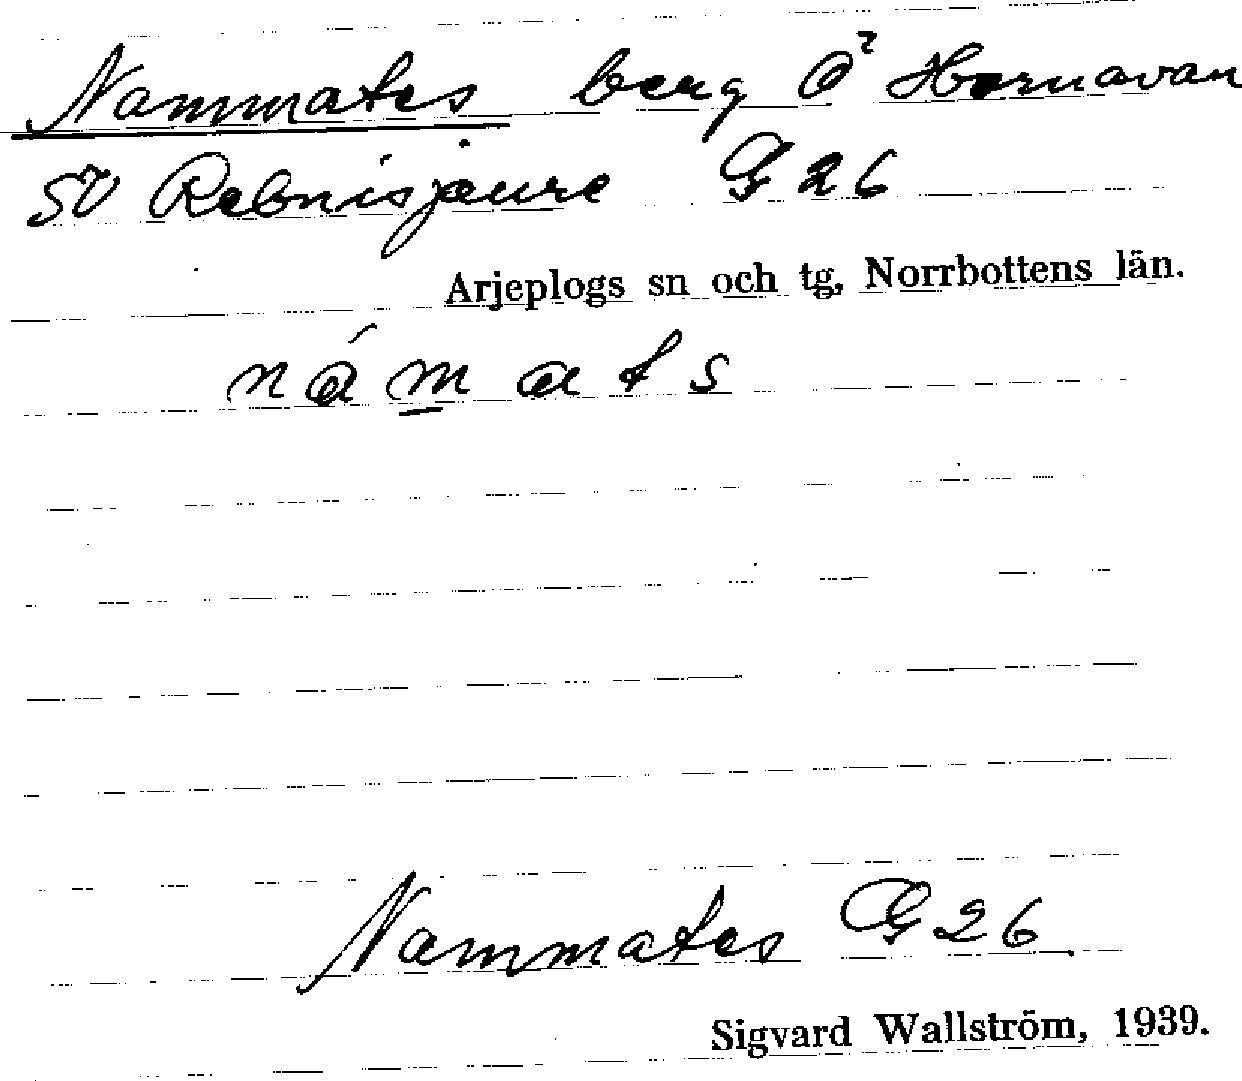 Nammates berg Ö Hornavan
SV Rebnisjaure G 26
Arjeplogs sn och tg, Norrbottens län.
námats
Nammates G 26
Sigvard Wallström, 1939.